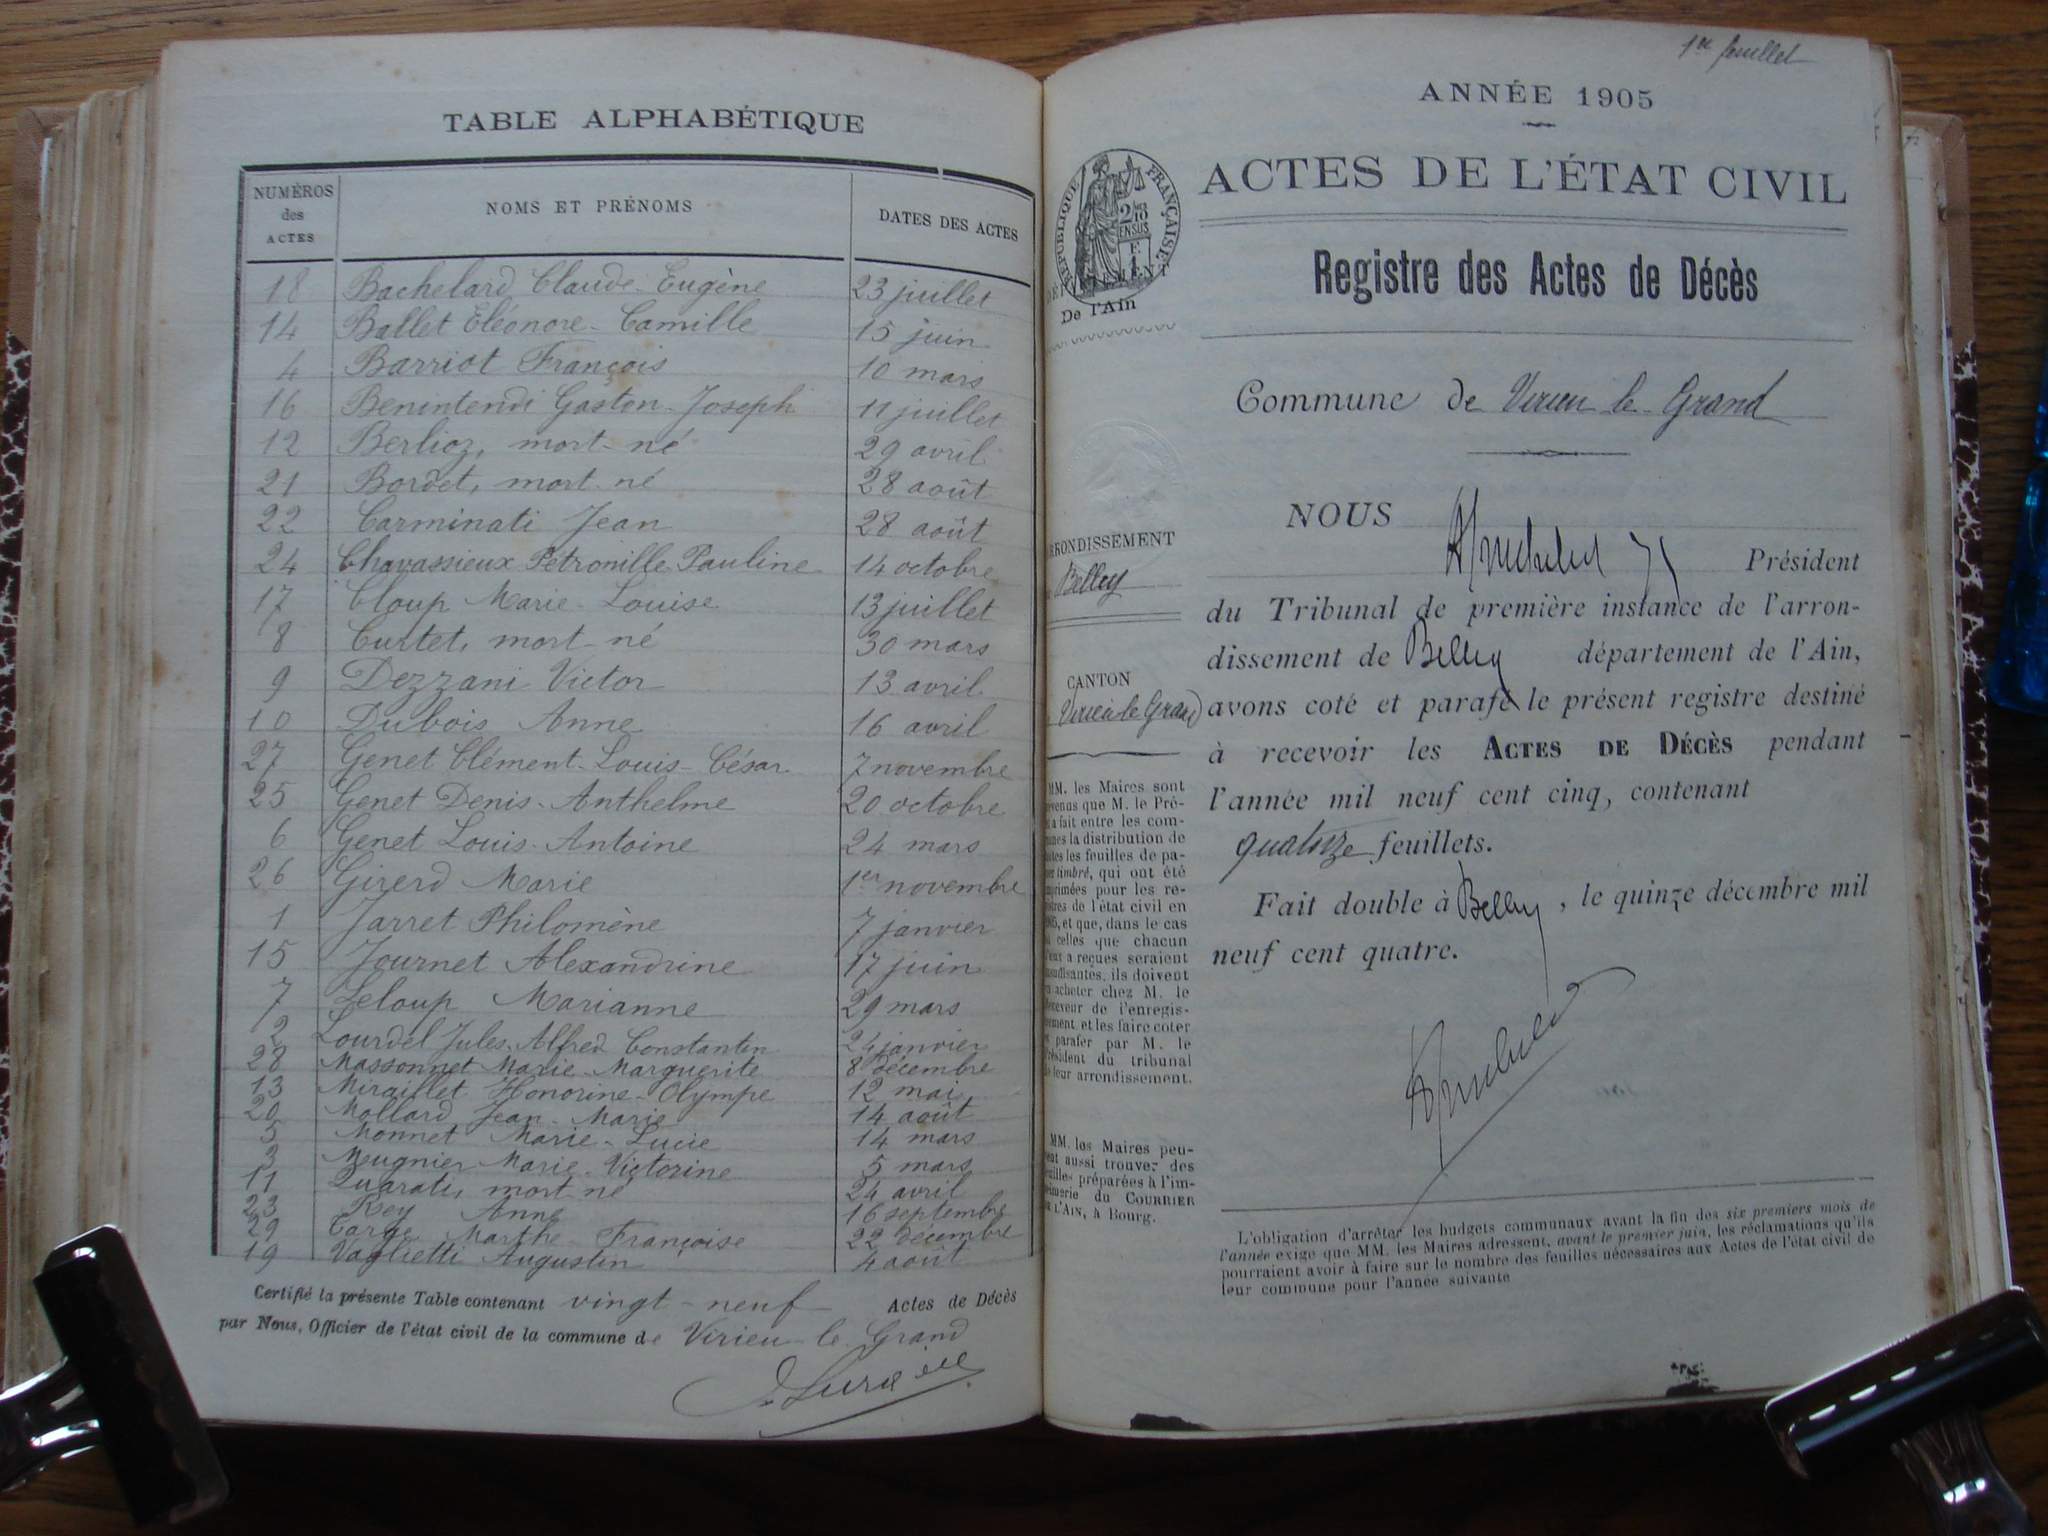 TABLE ALPHABÉTIQUE
NUMÉROS des ACTES NOMS ET PRÉNOMS DATES DES ACTES
18 Bachelard Claude-Eugène 23 juillet
14 Ballet Eléonore-Camille 15 juin
4 Barriot François 10 mars
16 Benintendi Gaston-Joseph 11 juillet
12 Berlioz, mort-né 29 avril
21 Bordet, mort-né 28 août
22 Carminati Jean 28 août
24 Chavassieux Pétronille Pauline 14 octobre
17 Cloup Marie-Louise 13 juillet
8 Curtet, mort-né 30 mars
9 Dezzani Victor 13 avril
10 Dubois Anne 16 avril
27 Genet Clément-Louis-César 7 novembre
25 Genet Denis-Anthelme 20 octobre
6 Genet Louis-Antoine 24 mars
26 Girerd Marie 1er novembre
1 Jarret Philomène 7 janvier
15 Journet Alexandrine 17 juin
7 Leloup Marianne 29 mars
2 Lourdel Jules-Alfred Constantin 24 janvier
28 Massonnet Marie-Marguerite 8 décembre
13 Miraillet Honorine-Olympe 12 mai
20 Mollard Jean-Marie 14 août
5 Monnet Marie-Lucie 14 mars
3 Meugnier Marie-Victorine 5 mars
11 Quarati, mort-né 24 avril
23 Rey Anne 16 septembre
29 Targe Marthe-Françoise 22 décembre
19 Vaglietti Augustin 4 août
Certifié la présente Table contenant vingt-neuf Actes de Décès
par Nous, Officier de l'état civil de la commune de Virieu-le-Grand
1er feuillet
ANNÉE 1905
ACTES DE L'ÉTAT CIVIL
RÉPUBLIQUE FRANÇAISE
De l'Ain
Registre des Actes de Décès
Commune de Virieu-le-Grand
ARRONDISSEMENT
Belley
CANTON
Virieu-le-Grand
MM. les Maires sont
prévenus que M. le Pré-
fet a fait entre les com-
munes la distribution de
toutes les feuilles de pa-
pier timbré, qui ont été
imprimées pour les re-
gistres de l'état civil en
1905, et que, dans le cas
où celles que chacun
d'eux a reçues seraient
insuffisantes, ils doivent
en acheter chez M. le
Receveur de l'enregis-
trement, et les faire coter
et parafer par M. le
Président du tribunal
de leur arrondissement.
MM. les Maires peu-
vent aussi trouver des
feuilles préparées à l'im-
primerie du COURRIER
DE L'AIN, à Bourg.
NOUS
Président
du Tribunal de première instance de l'arron-
dissement de Belley département de l'Ain,
avons coté et parafé le présent registre destiné
à recevoir les ACTES DE DÉCÈS pendant
l'année mil neuf cent cinq, contenant
quatorze feuillets.
Fait double à Belley, le quinze décembre mil
neuf cent quatre.
L'obligation d'arrêter les budgets communaux avant la fin des six premiers mois de
l'année exige que MM. les Maires adressent, avant le premier juin, les réclamations qu'ils
pourraient avoir à faire sur le nombre des feuilles nécessaires aux Actes de l'état civil de
leur commune pour l'année suivante